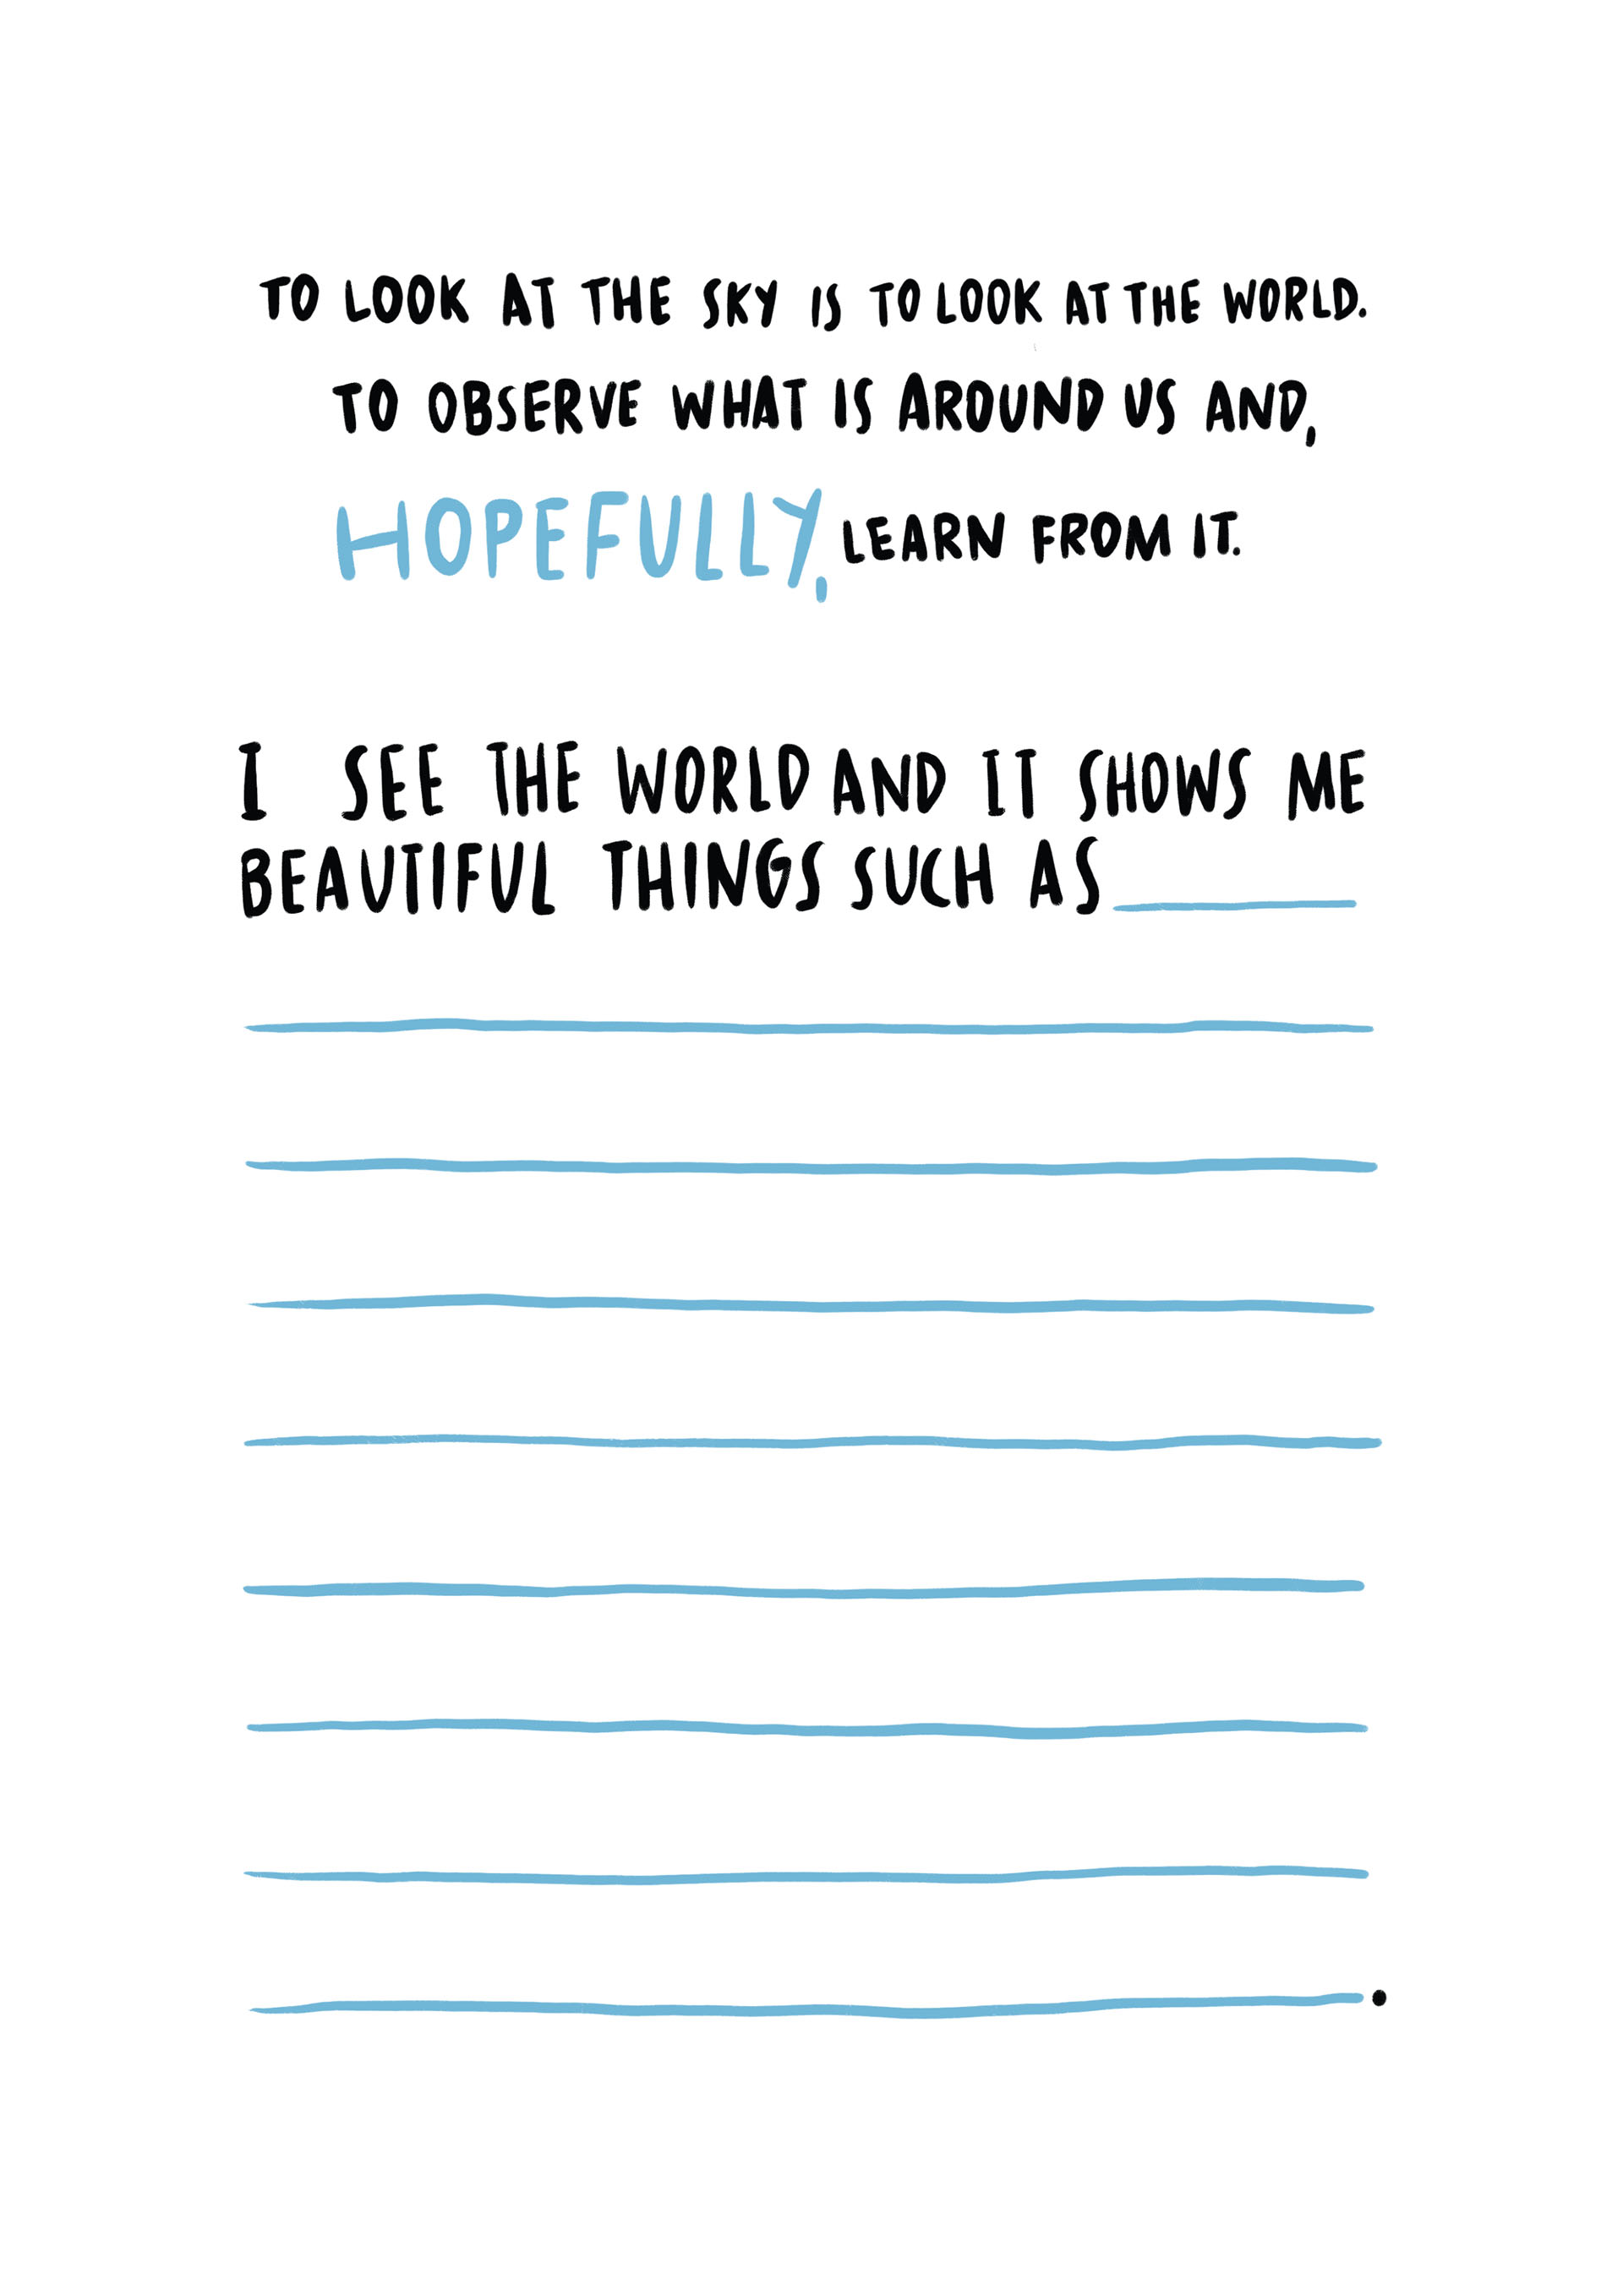 TO LOOK AT THE SKY IS TO LOOK AT THE WORLD.
TO OBSERVE WHAT IS AROUND US AND,
HOPEFULLY, LEARN FROM IT.
I SEE THE WORLD AND IT SHOWS ME
BEAUTIFUL THINGS SUCH AS
.